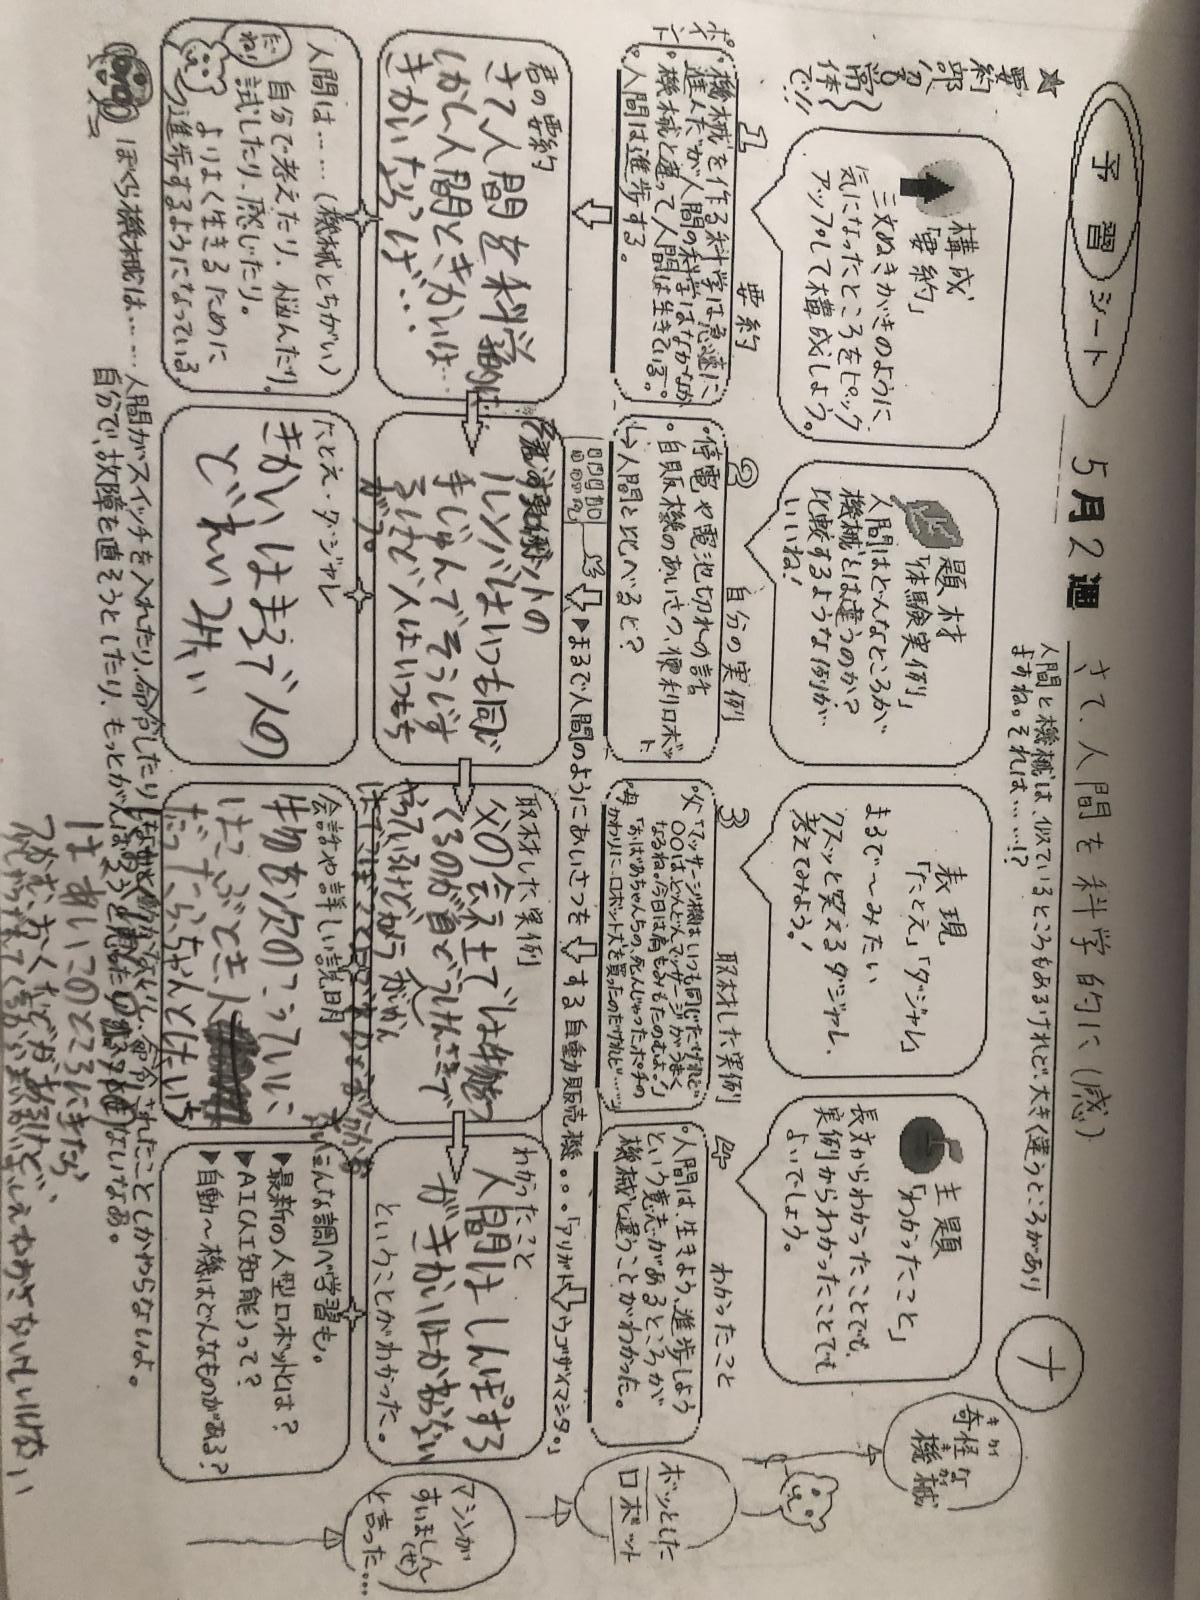 予習シート
5月2週
さて、人間を科学的に(感)
ナ
人間と機械は、似ているところもあるけれど、大きく違うところがあり
ますね。それは……!?
★要約
部分は
常
体
で!!
構成
「要約」
三文ぬきがきのように、
気になったところをピック
アップして構成しよう。
題材
「体験実例」
人間はどんなところが
機械とは違うのか?
比較するような例が
いいね!
表現
「たとえ」「ダジャレ」
まるで〜みたい
クスッと笑えるダジャレ、
考えてみよう!
主題
「わかったこと」
長文からわかったことでも、
実例からわかったことでも
よいでしょう。
奇怪な
機械
1
要約
ポイント
・機械を作る科学は急速に
進んだが人間の科学はなかなか
・機械と違って人間は生きている。
・人間は進歩する。
2
自分の実例
・停電や電池切れの話
・自販機のあいさつ、便利ロボット
↳人間と比べると?
3
取材した実例
・父「マッサージ機はいつも同じだけれど
〇〇はどんどんマッサージがうまく
なるね。今日は肩もみもたのむよ!」
・母「おばあちゃんちの、死んじゃったポチの
かわりに…ロボット犬を買ったのだけれど……」
4
わかったこと
・人間は、生きよう、進歩しよう
という意志があるところが
機械と違うことがわかった。
ボッとした
ロボット
▶まるで人間のようにあいさつをする自動販売機。。「アリガトウゴザイマシタ。」
君の要約
さて人間を科学的に
しかし人間ときかいは…
きかいならば…
ルンバはいつも同じ
まじゅんでそうじす
るけど人はいつもち
がう。
取材した実例
父の会社では物をつ
くるのが
わかったこと
人間はしんぽする
がきかいはかわらない
ということがわかった。
マシンが
すいましん(せ)
と言った…
人間は……(機械とちがい)
だね!
自分で考えたり、悩んだり、
試したり、感じたり。
よりよく生きるために
進歩するようになっている。
たとえ・ダジャレ
きかいはまるで人の
どれいみたい
会話や詳しい説明
物を次のこうていに
はこぶとき人
だったらちゃんとはいち
こんな調べ学習も。
▶最新の人型ロボットとは?
▶AI(人工知能)って?
▶自動〜機はどんなものがある?
ぼくら機械は……人間がスイッチを入れたり、命令したりしないと動かないし、命令されたことしかやらないよ。
自分で、故障を直そうとしたり、もっとがんばろうと思ったりはしないなあ。
はあいこのところにきたら